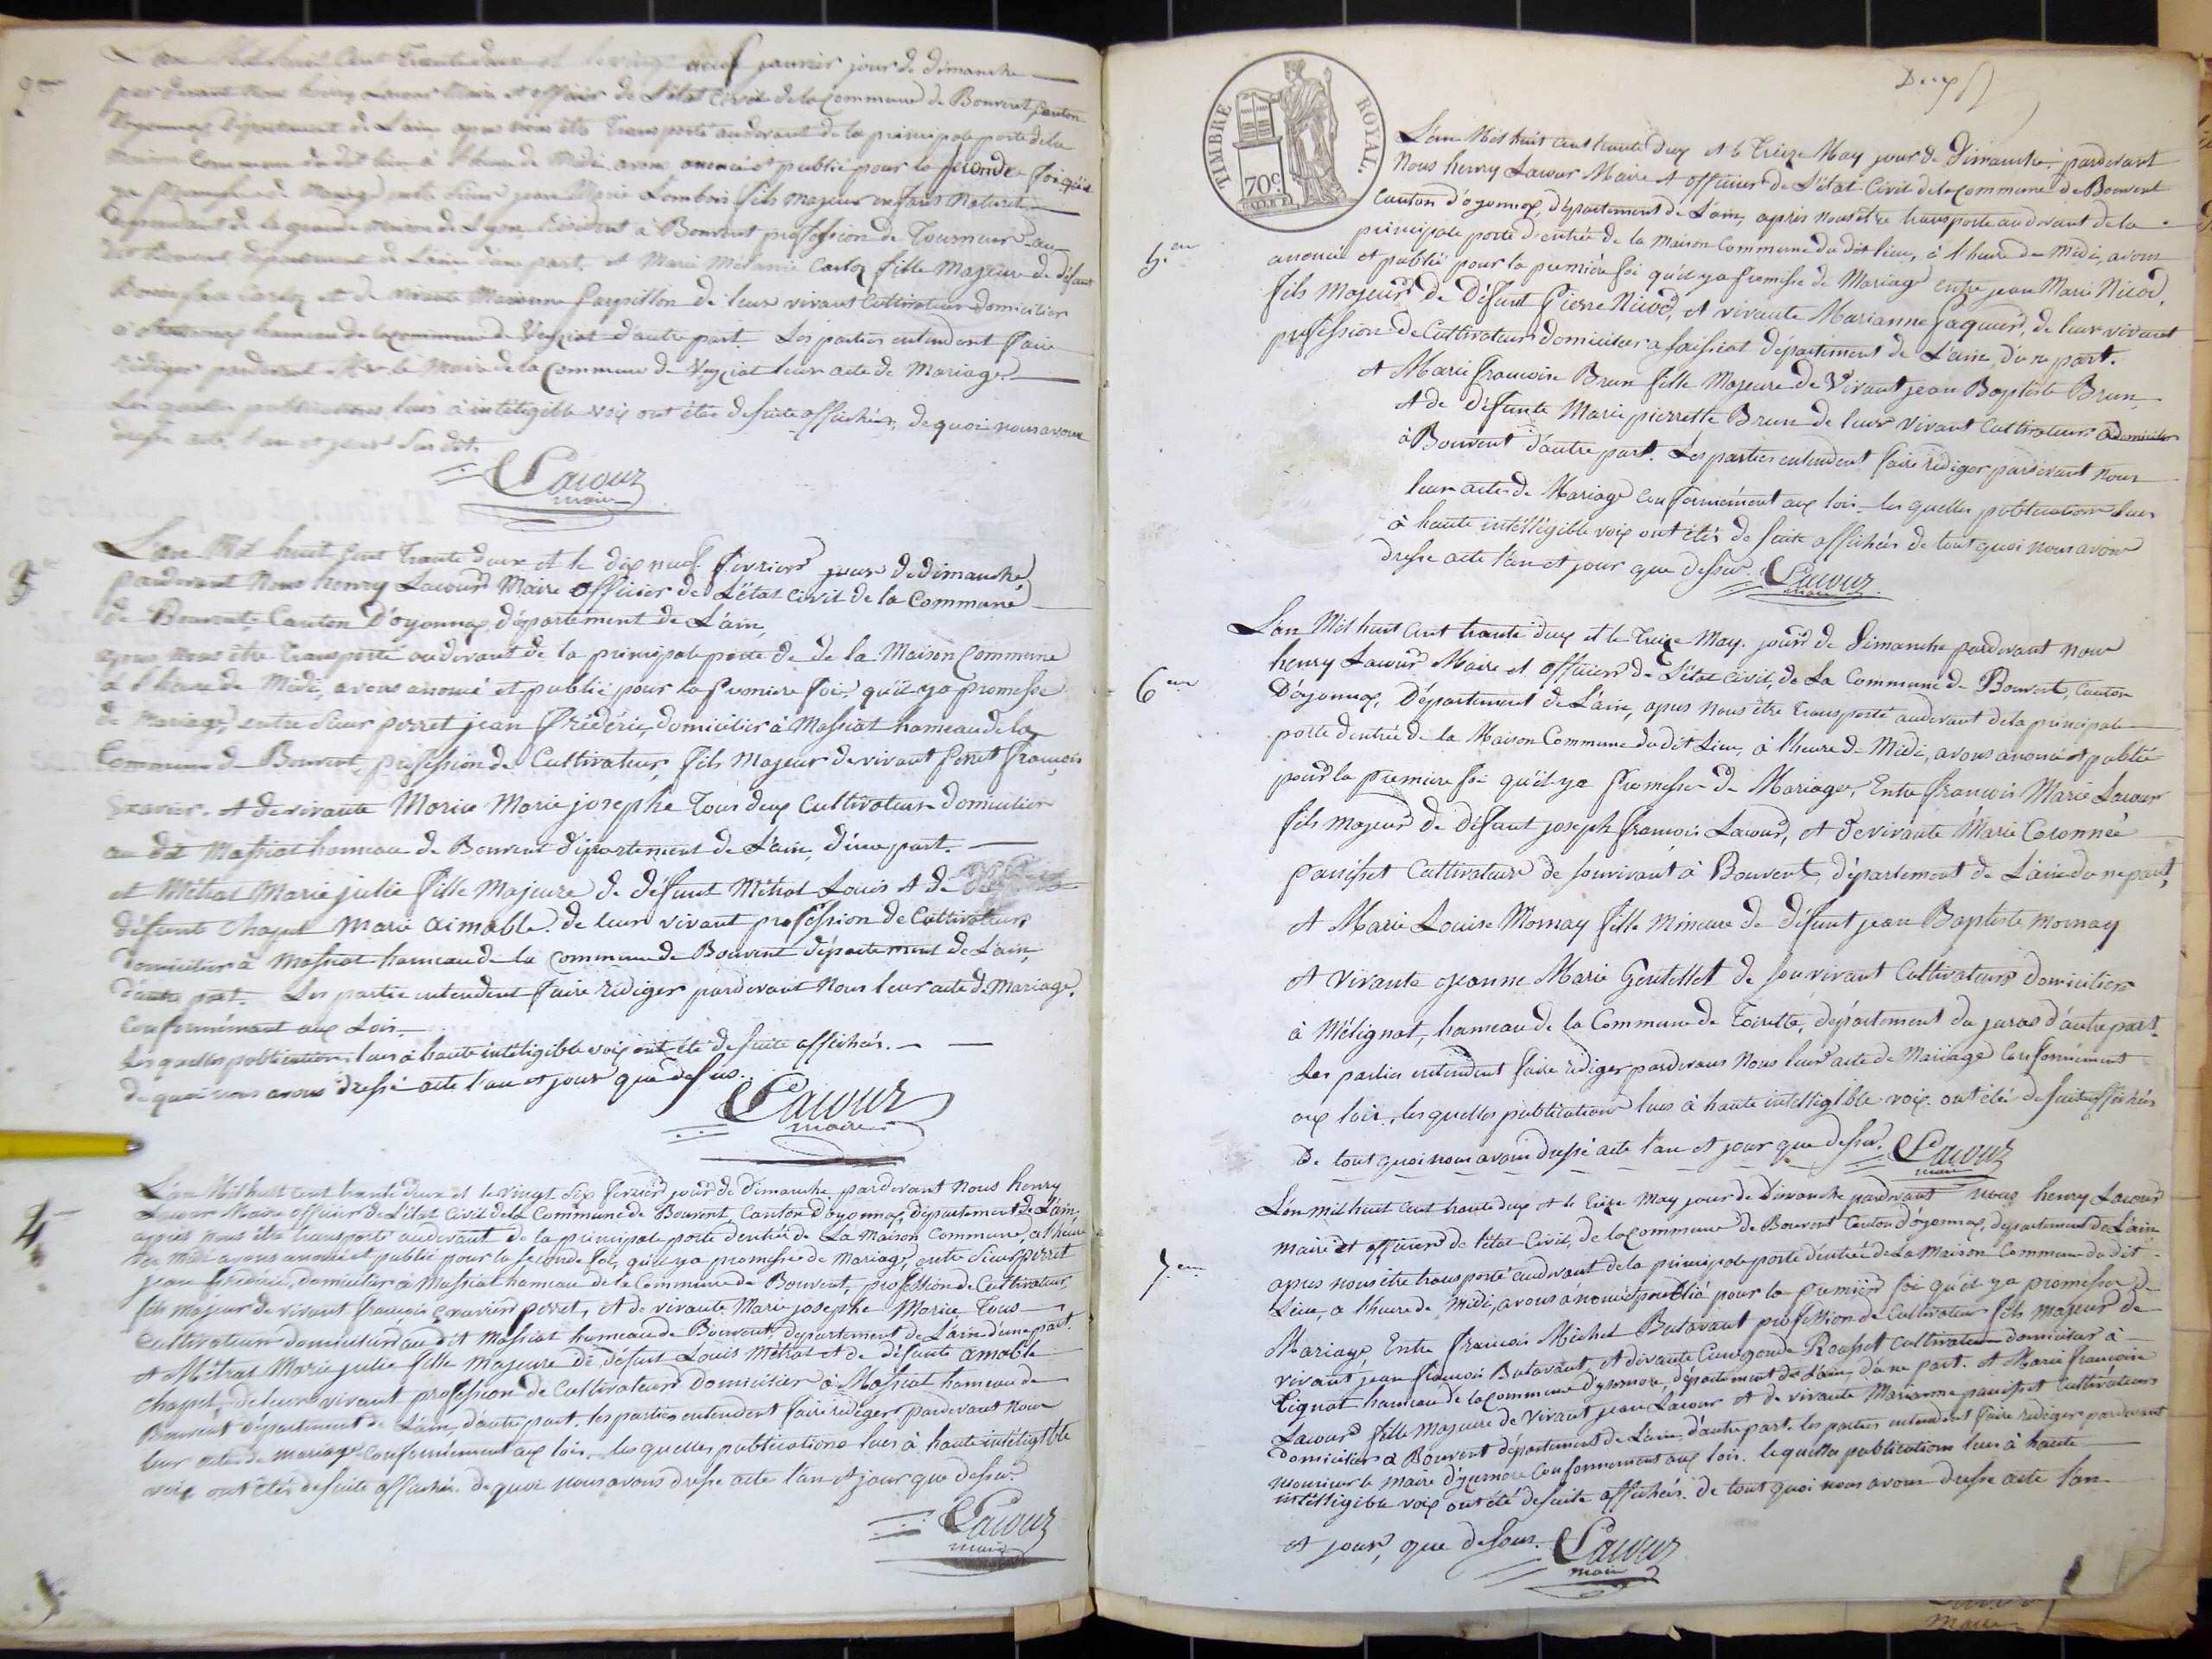 2em
L'an Mil huit Cent Trente deux et le vingt neuf janvier jour de dimanche
par devant Nous henry Lacour Maire et officier de L'état civil de la Commune de Bouvent Canton
d'oyonnax Département de L'ain, apres nous être Transporté au devant de la principale porte de la
Maison Commune du dit lieu à l'heure de Midi avons anoncé et publié pour la seconde foi qu'il
ya promesse de Mariage entre Sieur jean Marie Lombois fils Majeur enfant Naturel
dependant de la grande maison de Lyon Résident à Bouvent profession de Tourneur au
dit Bouvent département de L'ain d'une part, et Marie Mélanie Carloz fille Majeure de défunt
Carloz et de vivante Marianne Paupillon de leur vivant Cultivateur domicilier
hameau de la commune de Veyziat d'autre part. Les parties entendent faire
rédiger pardevant Mr le Maire de la Commune de Veyziat leur acte de Mariage.
Les quelles publications lues à intéligible voix ont étée de suite affichées, de quoi nous avons
dresse acte l'an et jour sus dit.
Lacour
maire
3e
L'an Mil huit Cent Trante deux et le dix neuf fivrier jour de dimanche
pardevant Nous henry Lacour Maire officier de L'état civil de la Commune
de Bouvent, Canton D'oyonnax, département de L'ain,
apres nous être Transporté au devant de la principale porte de de la Maison Commune
à l'heure de Midi, avons anoncé et publié pour la premiere foi, qu'il ya promesse
de Mariage, entre Sieur perret jean frédéric, domicilier à Massiat hameau de la
Commune de Bouvent, profession de Cultivateur, fils Majeur de vivant perret françois
Exavier. et de vivante Morice Marie josephe Tous deux Cultivateurs domicilier
au dit Massiat hameau de Bouvent département de L'ain, d'une part.
et Métral Marie julie fille Majeure de défunt Métral Louis et de
défunte Chapel Marie aimable. de leur vivant profession de Cultivateurs
domicilier à Massiat hameau de la commune de Bouvent département de L'ain,
d'autre part. Les partie entendent faire rédiger pardevant Nous leur acte de Mariage.
Conformémant aux Lois.
les quelles publication lues à haute intéligible voix ont été de suite affichés.
de quoi nous avons dressé acte l'an et jour que dessus.
Lacour
maire
4
L'an Mil huit cent trante deux et le vingt six fevrier jour de dimanche pardevant Nous henry
Lacour Maire officier de L'état civil de la Commune de Bouvent Canton d'oyonnax, département de L'ain
apres nous être transporté au devant de la principale porte d'entrée de La Maison Commune, a l'heure
de Midi avons anoncé et publié pour la seconde foi, qu'il ya promesse de Mariage, entre Sieur perret
jean frédéric, domicilier à Massiat hameau de la Commune de Bouvent, profession de Cultivateur,
fils majeur de vivant françois Exavier perret, et de vivante Marie josephe Morice, Tous
Cultivateurs domicilier au dit Massiat hameau de Bouvent département de L'ain d'une part.
et Métral Marie julie fille Majeure de défunt Louis Métral et de défunte amable
Chapel, de leur vivant profession de Cultivateurs domicilier à Massiat hameau de
Bouvent département de L'ain, d'autre part, les parties entendent faire rediger pardevant Nous
leur acte de Mariage Conformément aux lois. les quelles publications lues à haute inteligtble
voix ont étés de suite affichés. de quoi nous avons dresse acte l'an et jour que dessus.
Lacour
maire
TIMBRE ROYAL.
70c.
Deux
5.em
L'an Mil huit Cent trante deux et le treize May jour de dimanche, pardevant
Nous henry Lacour Maire et officier de L'état Civil de la Commune de Bouvent
Canton d'oyonnax, département de L'ain, après nous être transporté au devant de la
principale porte d'entrée de la Maison Commune du dit lieu, à l'heure de Midi, avons
anoncé et publié pour la première foi qu'il ya promesse de Mariage entre jean Marie Nicod,
fils Majeur de Défunt Pierre Nicod, et vivante Marianne jaquier, de leur vivant
profession de Cultivateur domicilier a faissiat département de L'ain, d'une part.
et Marie francoise Brun fille Majeure de Vivant jean Baptiste Brun,
et de Défunte Marie pierrette Brun de leur vivant Cultivateur domicilier
à Bouvent d'autre part. Les parties entendent faire rédiger pardevant nous
leur acte de Mariage Conformément aux lois les quelles publication lues
à haute intéligible voix ont étés de suite affichés de tout quoi nous avons
dresse acte l'an et jour que dessus. Lacour
maire
6eme
L'an Mil huit Cent trante deux et le Treize May. jour de dimanche pardevant nous
henry Lacour Maire et officier de L'état civil, de La Commune de Bouvent, Canton
D'oyonnax, Département de L'ain, apres Nous être transporté audevant de la principale
porte d'entrée de la Maison Commune du dit Lieu, à l'heure de Midi, avons anoncé et publié
pour la premiere foi qu'il ya promesse de Mariage, Entre francois Marie Lacour
fils majeur de Défunt joseph francois Lacour, et de vivante Marie Caronnée
panisset Cultivateur de son vivant à Bouvent, département de L'ain d'une part,
et Marie Louise Mornay fille Mineure de défunt jean Baptiste mornay
et vivante jeanne Marie Goutellet de son vivant Cultivateurs domicilier
à Mélignat, hameau de la Commune de Toirette, département du juras d'autre part.
Les parties entendent faire rédiger pardevant Nous leur acte de Mariage Conformément
aux lois, les quelles publication lues à haute intelligible voix. ont étés de suite affichés
De tout quoi nous avons dressé acte l'an et jour que dessus. Lacour
maire
7.em
L'an mil huit Cent trante deux et le treize May jour de dimanche pardevant nous henry Lacour
maire et officier de l'état Civil, de la commune de Bouvent Canton d'oyonnax, departement de L'ain
apres nous être transporté audevant de la principale porte d'entrée de La Maison Commune du dit
Lieu, a l'heure de Midi, avons anoncé publié pour la premiere foi qu'il ya promesse de
Mariage Entre francois Michel Butavant profession de Cultivateur fils Majeur de
vivant jean francois Butavant, et de vivante Cunegonde Rousset Cultivateur domicilier à
Tignat hameau de la Commune d'ysernore, département de L'ain, d'une part. et Marie francoise
Lacour fille Majeure de Vivant jean Lacour et de vivante Marianne panisset Cultivateurs
domicilier à Bouvent département de L'ain, d'autre part. les parties entendent faire rediger pardevant
monsieur le Maire d'ysernore Conformement aux lois. lesquelles publications lues à haute
intelligible voix ont été de suite affichés. de tout quoi nous avons dresse acte l'an
et jour, que dessus. Lacour
maire
maire